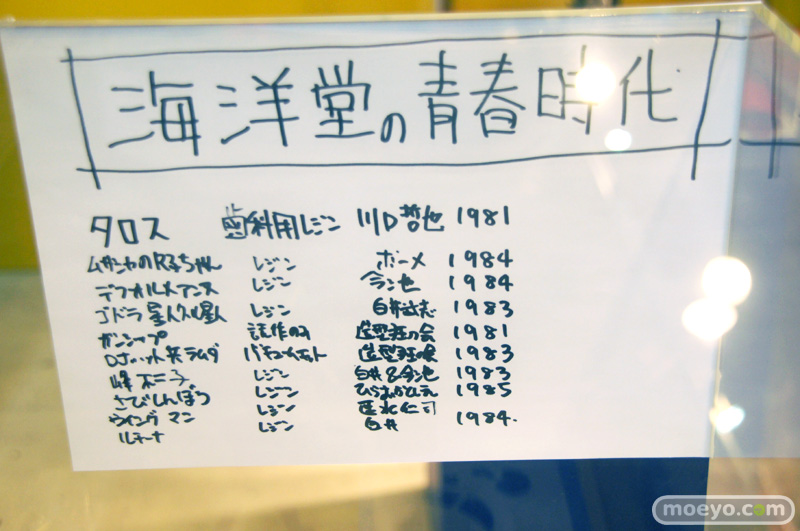 海洋堂の青春時代
タロス 歯科用レジン 川口哲也 1981
ムサシヤの 子ちゃん レジン ボーメ 1984
デフォルメアンヌ レジン 今 也 1984
ゴドラ星人 レジン 白井武志 1983
ガンシップ 試作のみ 造型班の会 1981
ロボット兵ラムダ バキュームキット 造型班の会 1983
峰不二子 レジン 白井&今池 1983
さびしんぼう レジン 1985
ウイングマン レジン 仁司
ルチーナ レジン 白井 1984.
moeyo.com